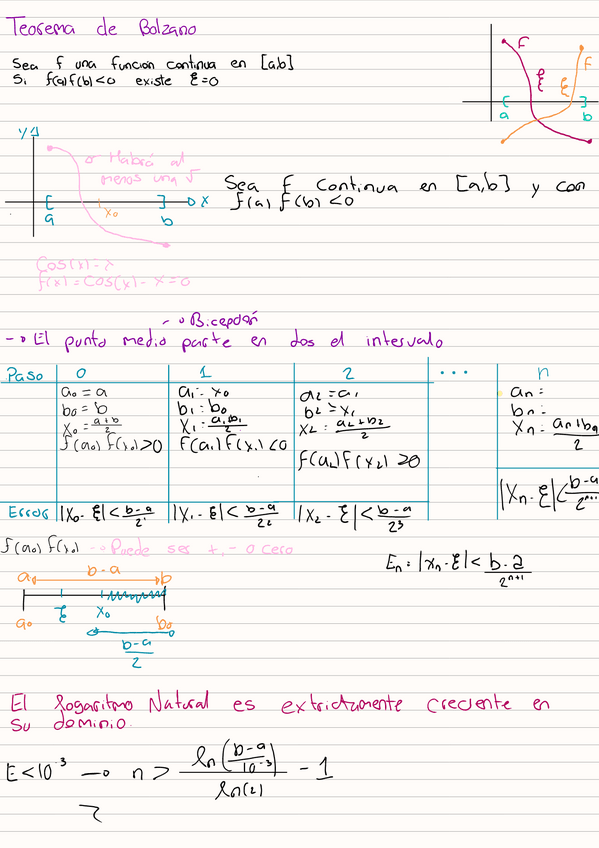 Teorema de Bolzano
Sea f una funcion continua en [a,b]
Si f(a)f(b)<0 existe ξ=0
F
F
ξ
ξ
a
b
y
Habrá al
menos una √
a
x₀
b
x
Sea F continua en [a,b] y con
f(a) f(b) <0
Cos(x)=x
f(x)=Cos(x)-x=0
Bicepción
El punto medio parte en dos el intervalo
Paso 0 1 2 ... n
a₀=a a₁=x₀ a₂=a₁ an=
b₀=b b₁=b₀ b₂=x₁ bn=
x₀=a+b/2 x₁=a₁b₁/2 x₂=a₂+b₂/2 xn=an+bn/2
f(a₀)f(x₀)>0 F(a₁)F(x₁)<0 f(a₂)F(x₂)>0
Error |x₀-ξ|<b-a/2¹ |x₁-ξ|<b-a/2² |x₂-ξ|<b-a/2³ |xn-ξ|<b-a/2ⁿ⁺¹
f(a₀)f(x₀) Puede ser +,- o cero
En=|xn-ξ|<b-a/2ⁿ⁺¹
a b-a b
ξ x₀
a₀ b₀
b-a/2
El logaritmo Natural es extrictamente creciente en
su dominio.
E<10⁻³ → n > ln(b-a/10⁻³)/ln(2) - 1